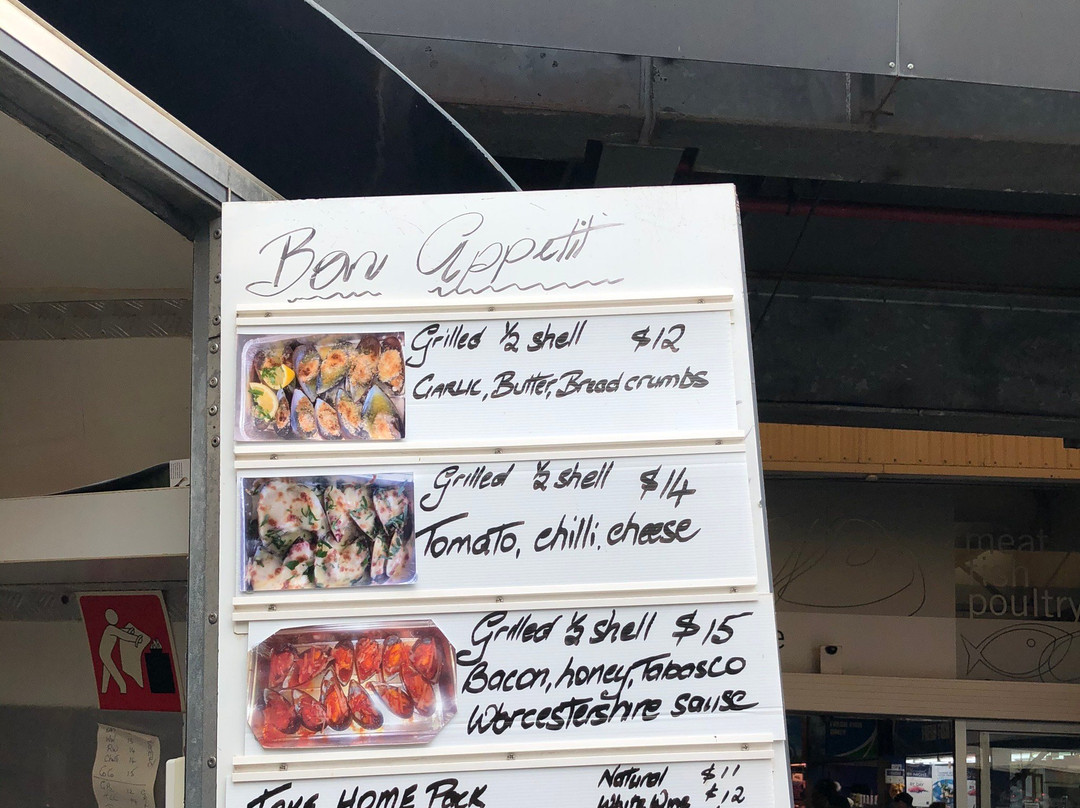 Bon Appetit
Grilled ½ shell $12
GARLIC, Butter, Bread crumbs
Grilled ½ shell $14
Tomato, chilli, cheese
Grilled ½ shell $15
Bacon, honey, Tabasco
Worcestershire sause
Take HOME Pack
Natural $11
White Wine $12
meat
poultry